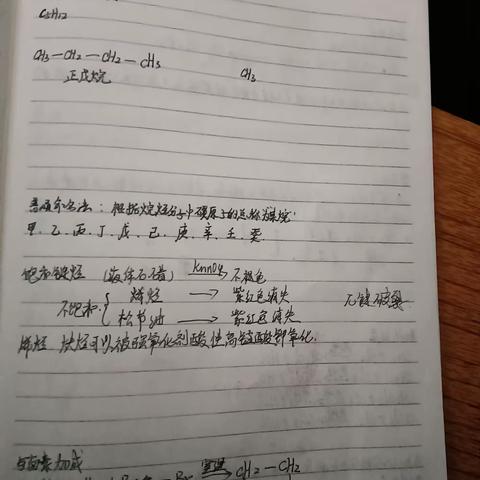 C5H12
CH3—CH2—CH2—CH3
正戊烷
CH3
普通命名法：根据烷烃分子中碳原子的总称为某烷
甲、乙、丙、丁、戊、己、庚、辛、壬、癸.
饱和链烃（液体石蜡） KmnO4 不褪色
不饱和 { 烯烃 → 紫红色消失
松节油 → 紫红色消失
烯烃 炔烃可以被强氧化剂酸性高锰酸钾氧化.
与卤素加成
室温 CH2—CH2